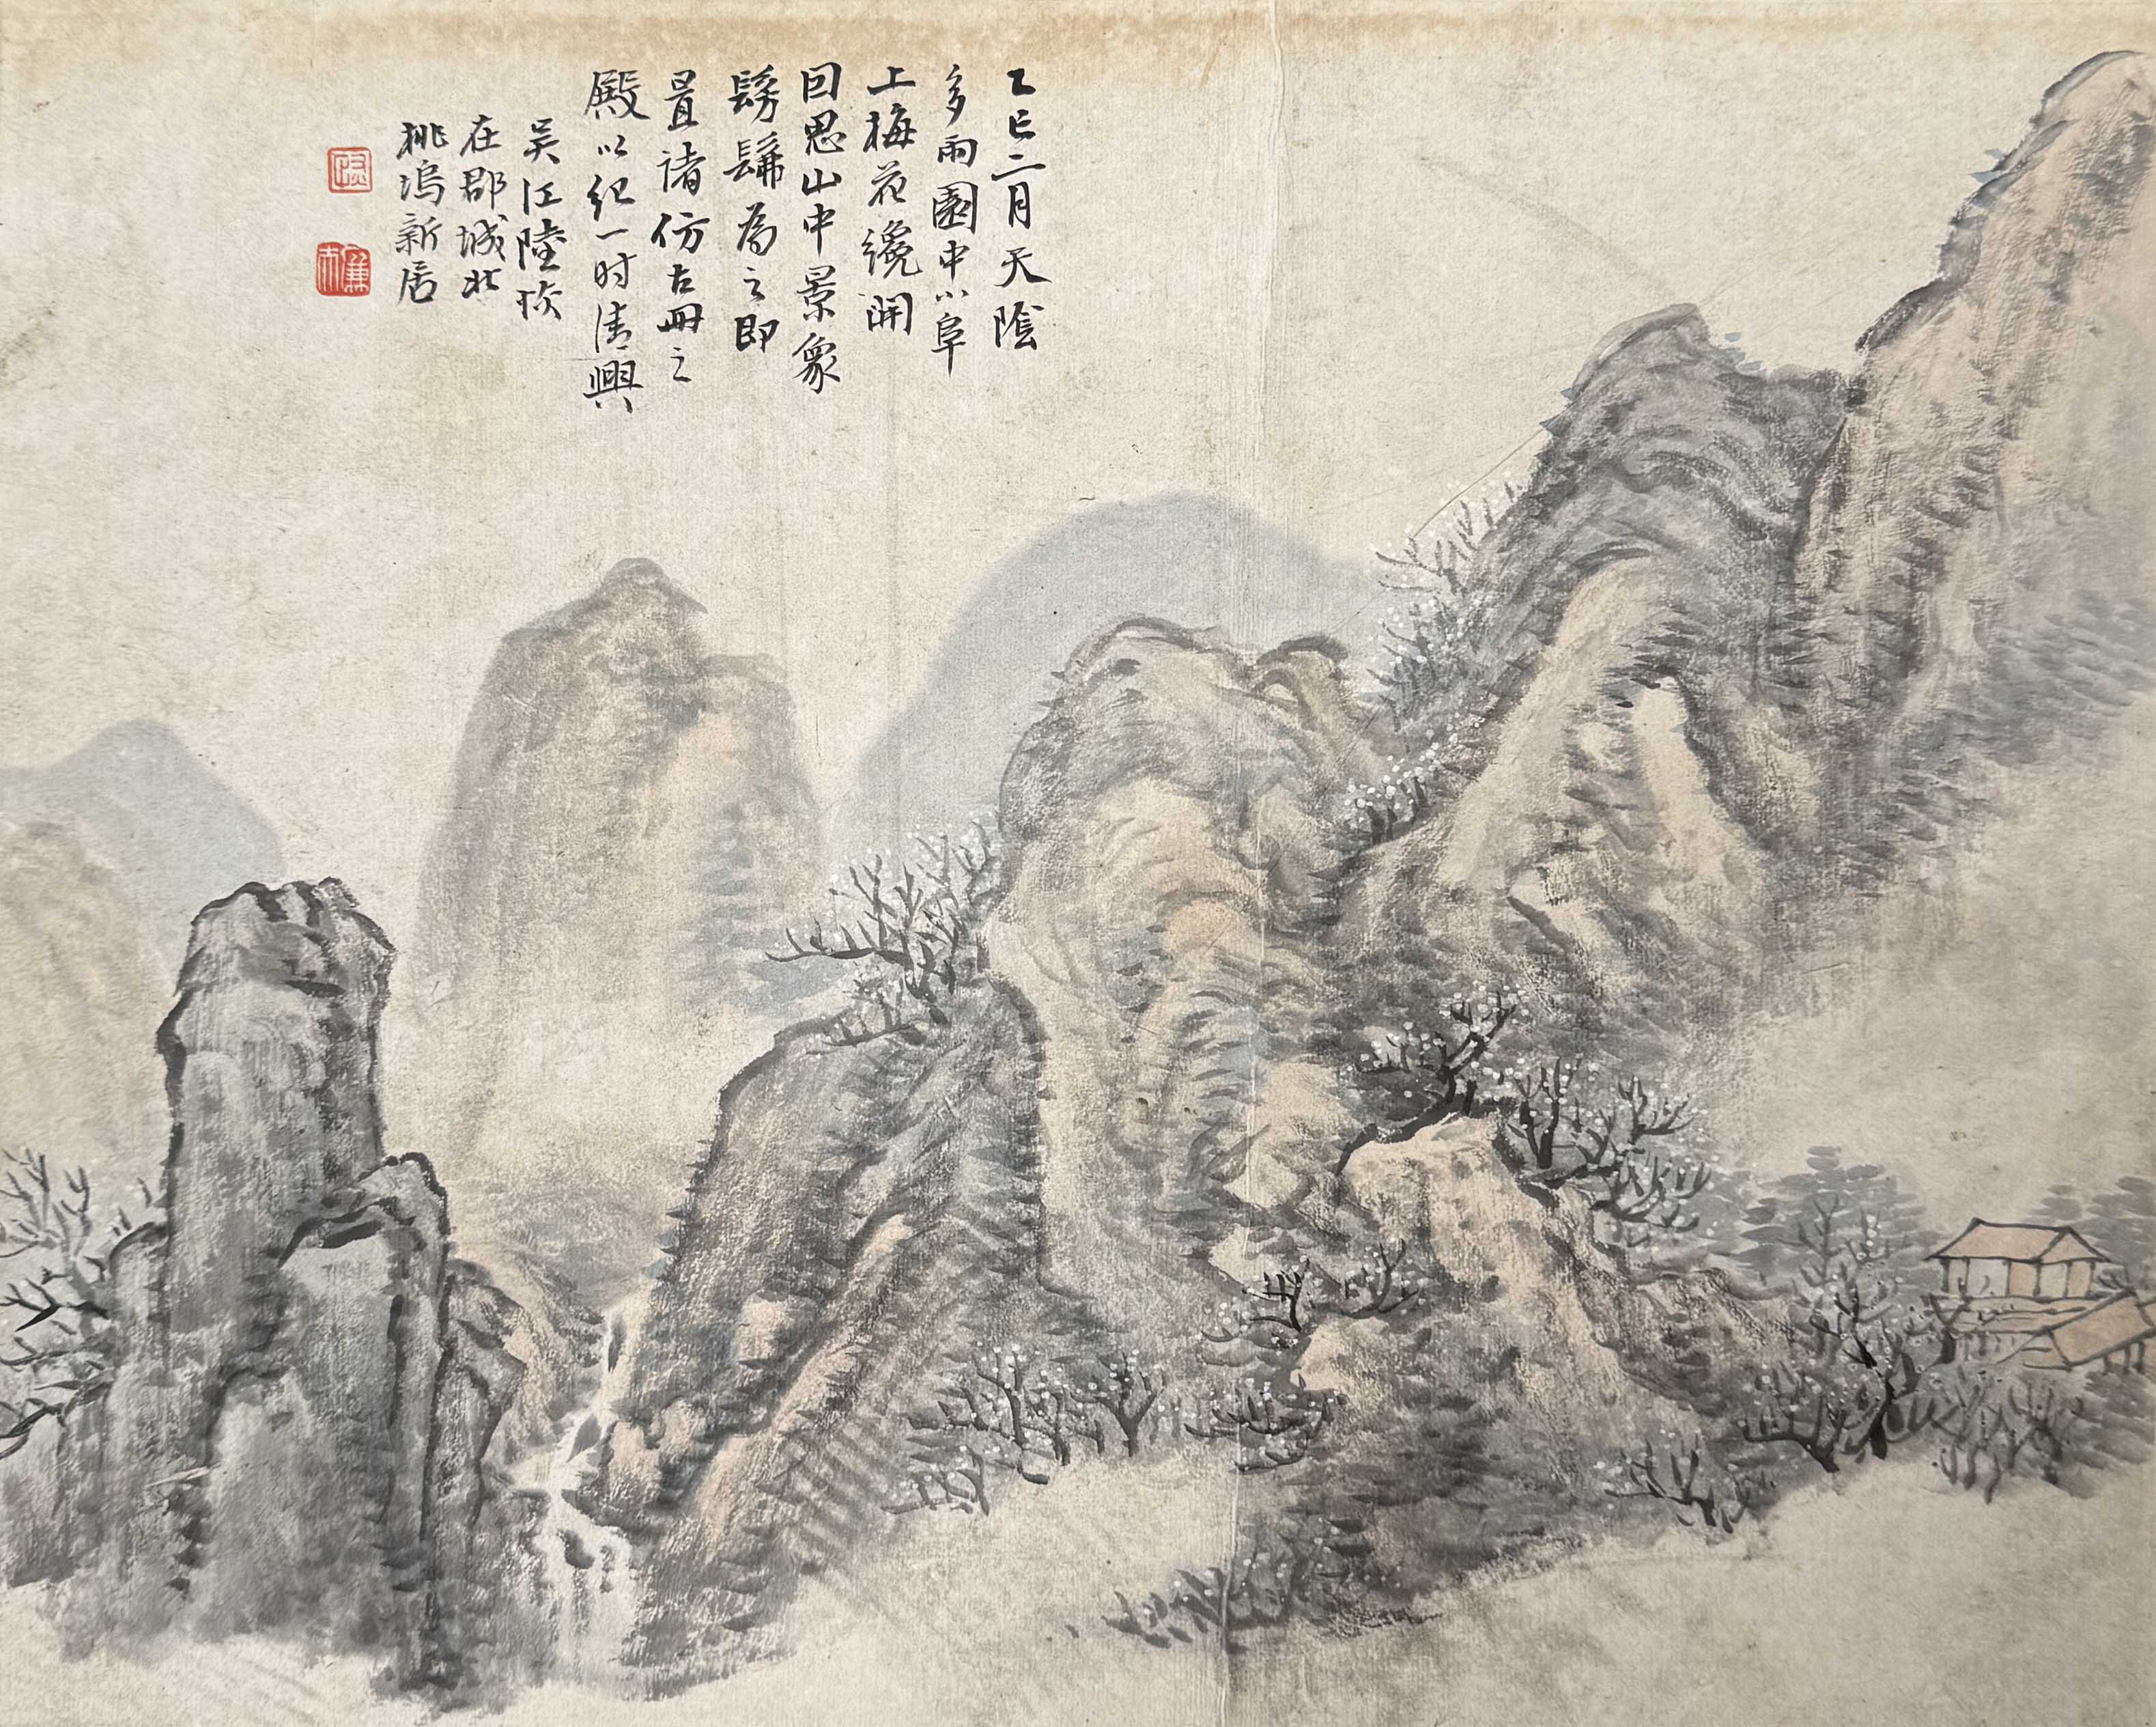 乙巳二月天陰
多雨園中小阜
上梅花纔開
回思山中景象
髣髴為之即
置諸仿古冊之
殿以紀一时清興
吳江陸恢
在郡城北
桃塢新居
恢
廉夫